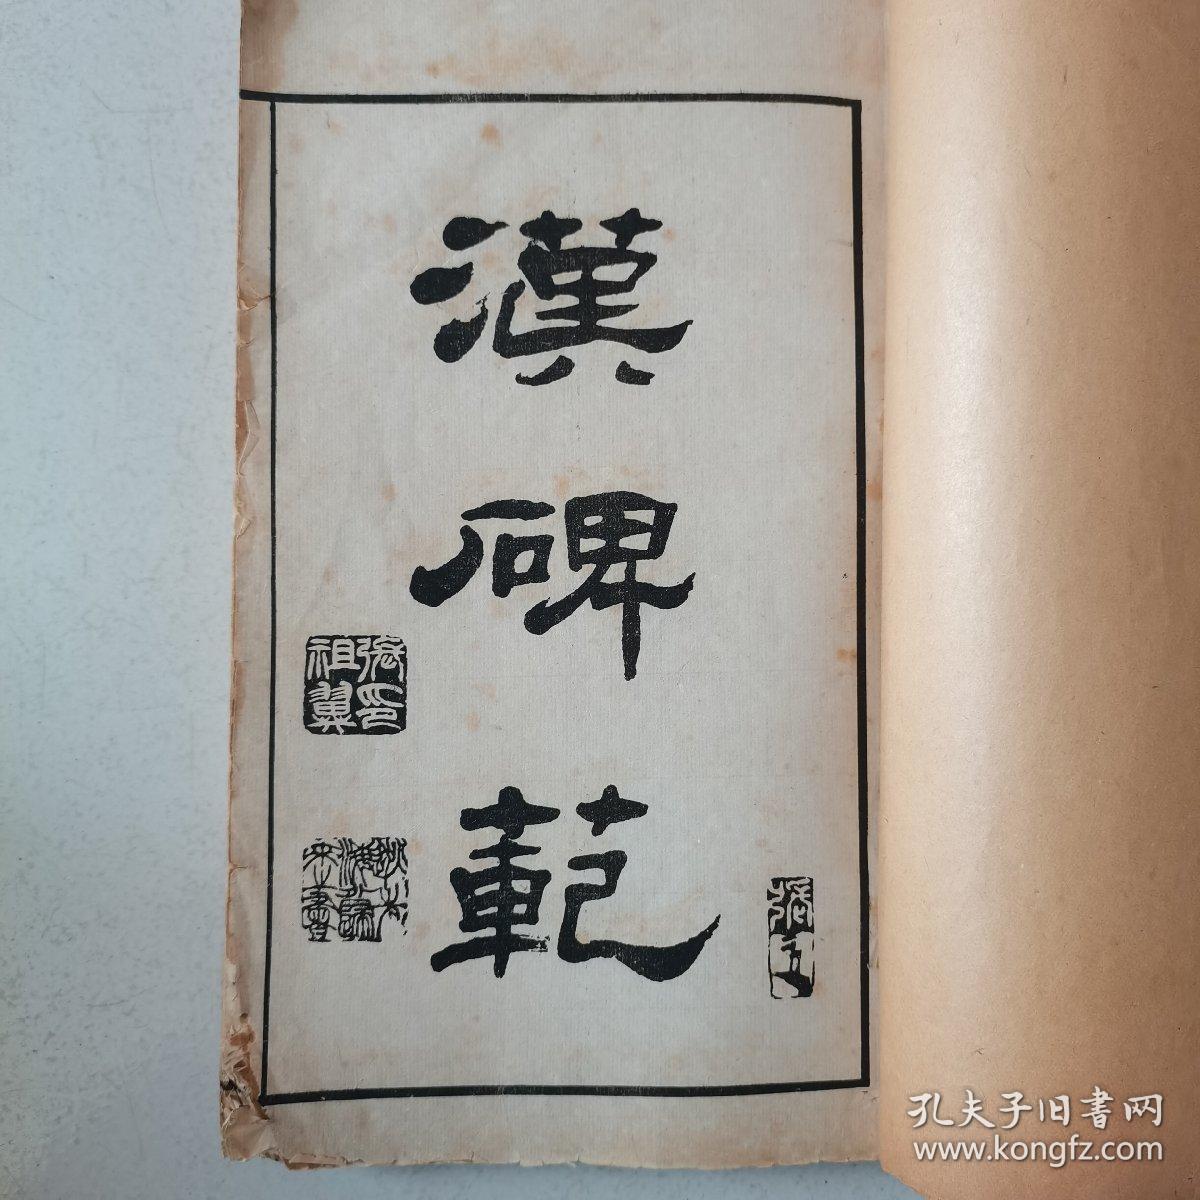 漢碑範
張印祖翼
張五
孔夫子旧書网
www.kongfz.com